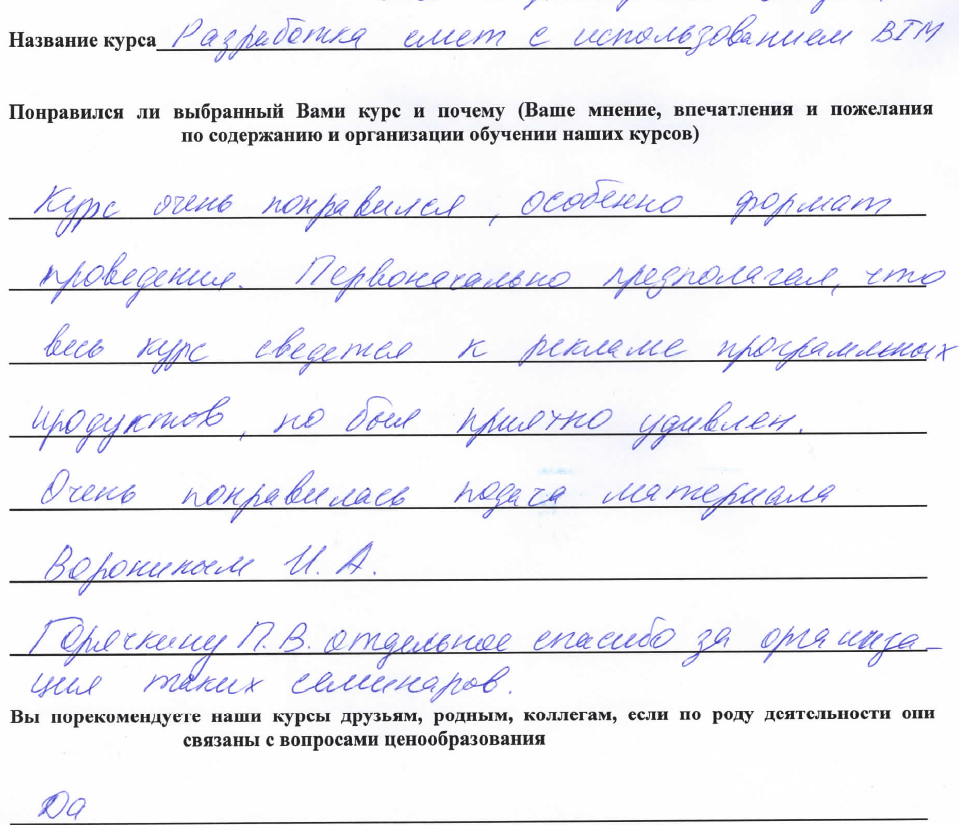 Название курса Разработка смет с использованием BIM
Понравился ли выбранный Вами курс и почему (Ваше мнение, впечатления и пожелания
по содержанию и организации обучении наших курсов)
Курс очень понравился, особенно формат
проведения. Первоначально предполагал, что
весь курс сведется к рекламе программных
продуктов, но был приятно удивлен.
Очень понравилась подача материала
Ворониным И. А.
Горячкину П. В. отдельное спасибо за организа-
ция таких семинаров.
Вы порекомендуете наши курсы друзьям, родным, коллегам, если по роду деятельности они
связаны с вопросами ценообразования
Да